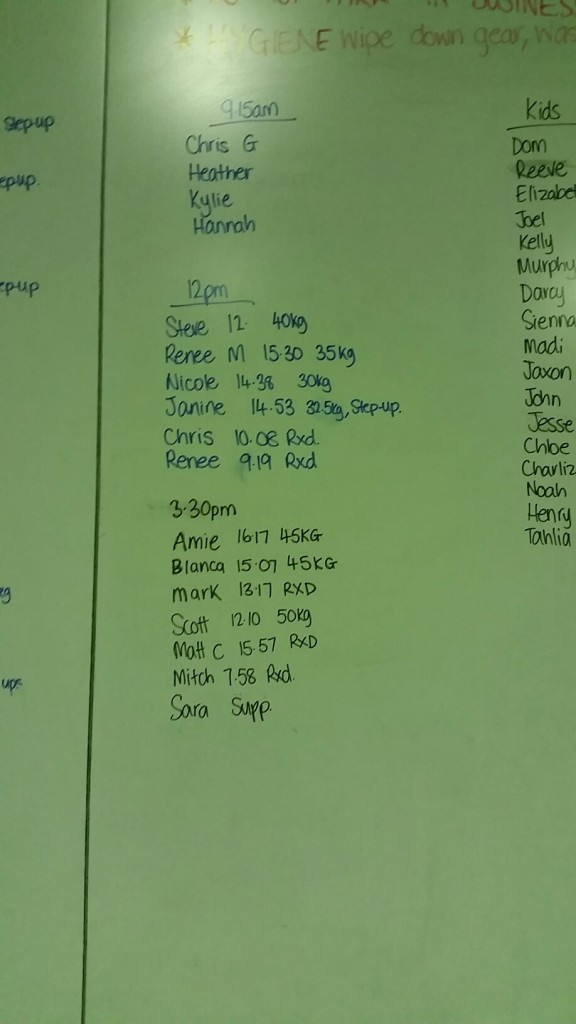 IN BUSINES
* HYGIENE wipe down gear, was
step-up
ep-up.
ep-up
ups
9.15am
Chris G
Heather
Kylie
Hannah
12pm
Steve 12. 40kg
Renee M 15.30 35kg
Nicole 14.38 30kg
Janine 14.53 32.5kg, Step-up.
Chris 10.08 Rxd.
Renee 9.19 Rxd
3.30pm
Amie 16.17 45KG
Blanca 15.07 45KG
mark 13.17 RXD
Scott 12.10 50kg
Matt C 15.57 RXD
Mitch 7.58 Rxd.
Sara Supp.
Kids
Dom
Reeve
Elizabet
Joel
Kelly
Murphy
Darcy
Sienna
Madi
Jaxon
John
Jesse
Chloe
Charliz
Noah
Henry
Tahlia